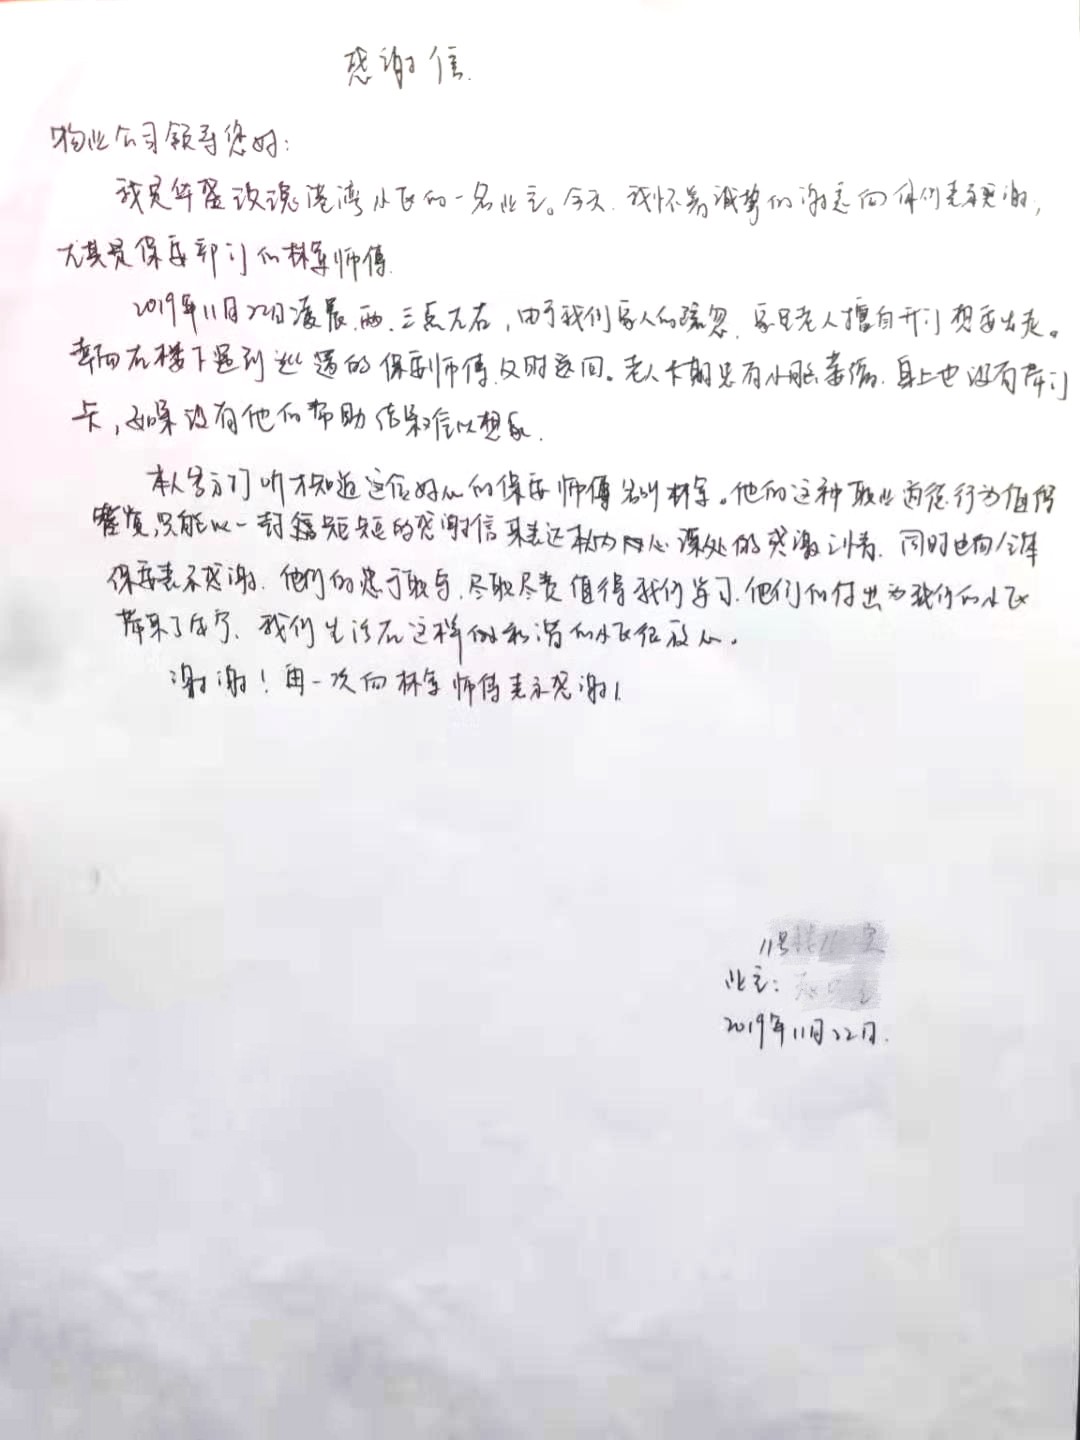 感谢信
物业公司领导您好:
我是华盛玫瑰港湾小区的一名业主。今天,我怀着诚挚的谢意向你们表示感谢,
尤其是保安部门的林军师傅.
2019年11月22日凌晨,两、三点左右,由于我们家人的疏忽,家里老人擅自开门想要出走。
幸而在楼下遇到巡逻的保安师傅及时返回。老人长期患有小脑萎缩,身上也没有带门
卡,如果没有他的帮助结果难以想象.
本人多方打听才知道这位好心的保安师傅名叫林军。他的这种职业道德行为值得
赞赏,只能以一封短短的感谢信来表达我内心深处的感激之情,同时也向全体
保安表示感谢.他们的忠于职守,尽职尽责值得我们学习.他们的付出为我们的小区
带来了安宁,我们生活在这样的和谐的小区很放心。
谢谢!再一次向林军师傅表示感谢!
11号
业主:
2019年11月22日.